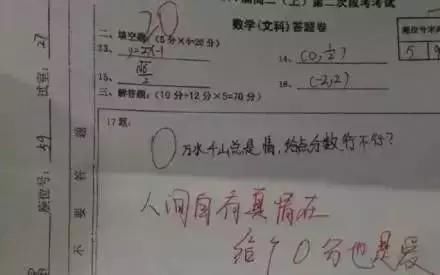 20
高二（上）第二次段考考试
数学(文科)答题卷
二、填空题:（5分×4=20分）
13、y=2x-1
14、(0,½)
15、√6/2
16、(-2,2)
三、解答题:（10分+12分×5=70分）
座位号末两
5
试室: 27
座位号: 59
不要答题
17题:
0
万水千山总是情,给点分数行不行?
人间自有真情在
给个0分也是爱